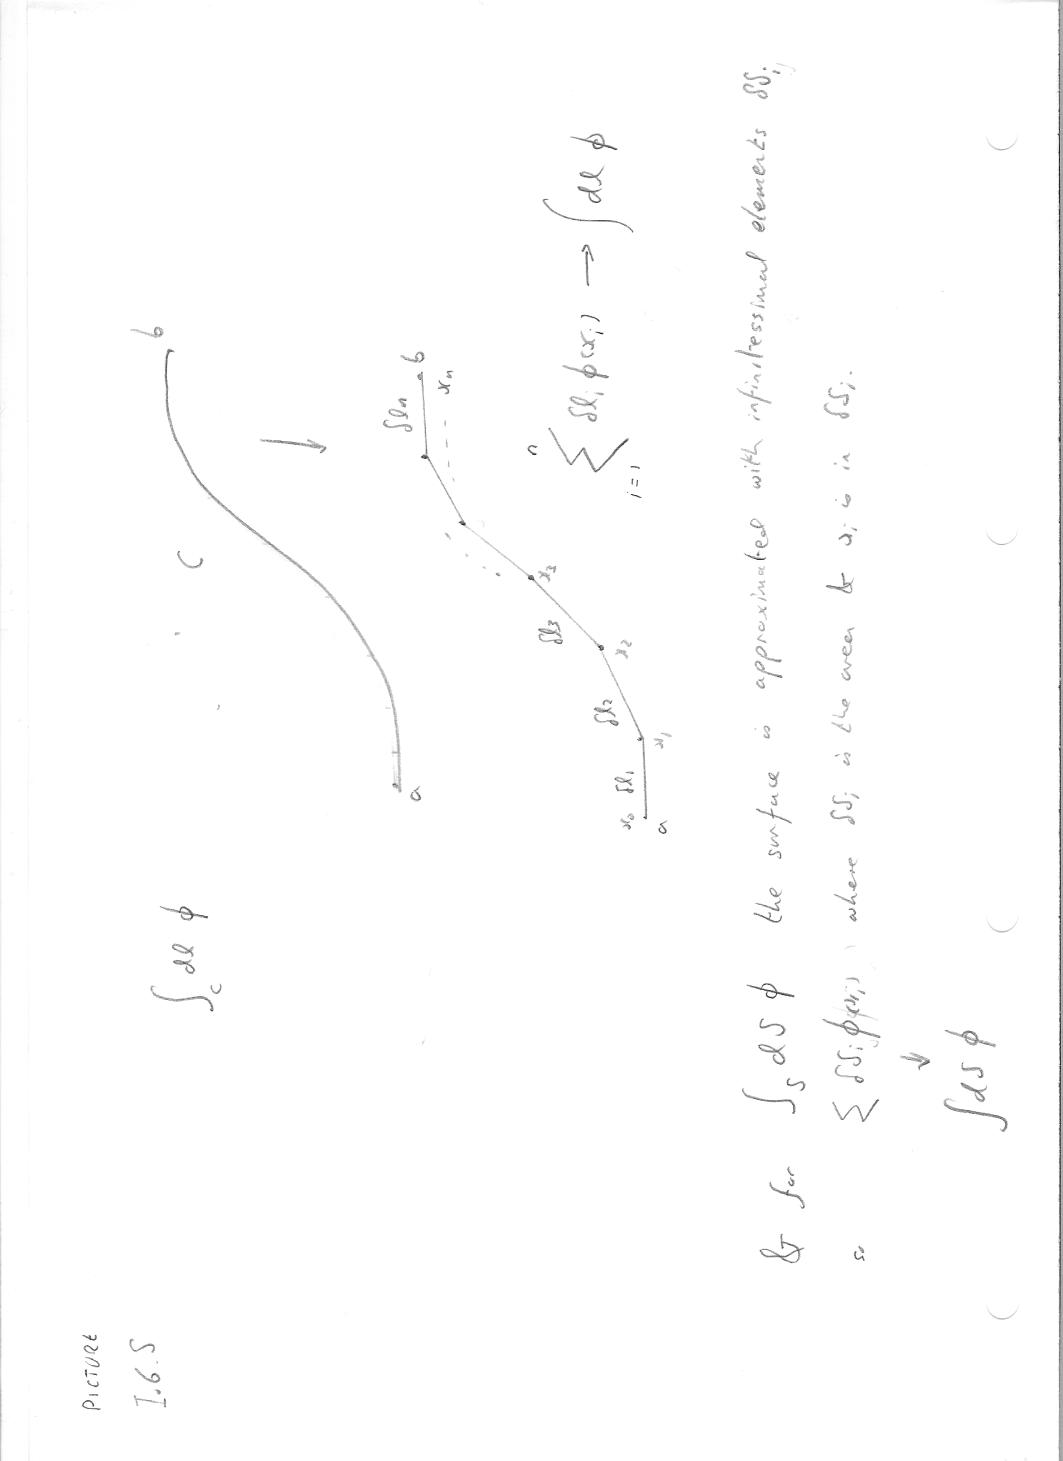 PICTURE
I.6.5
∫_C dl φ
C
a
b
↓
x₀ δl₁ x₁ δl₂ x₂ δl₃ x₃ δlₙ xₙ
a
b
∑_{i=1}^{n} δlᵢ φ(xᵢ) → ∫ dl φ
& for ∫_S dS φ the surface is approximated with infinitessimal elements δSᵢ,
so ∑ δSᵢ φ(xᵢ), where δSᵢ is the area & xᵢ is in δSᵢ.
↓
∫ dS φ